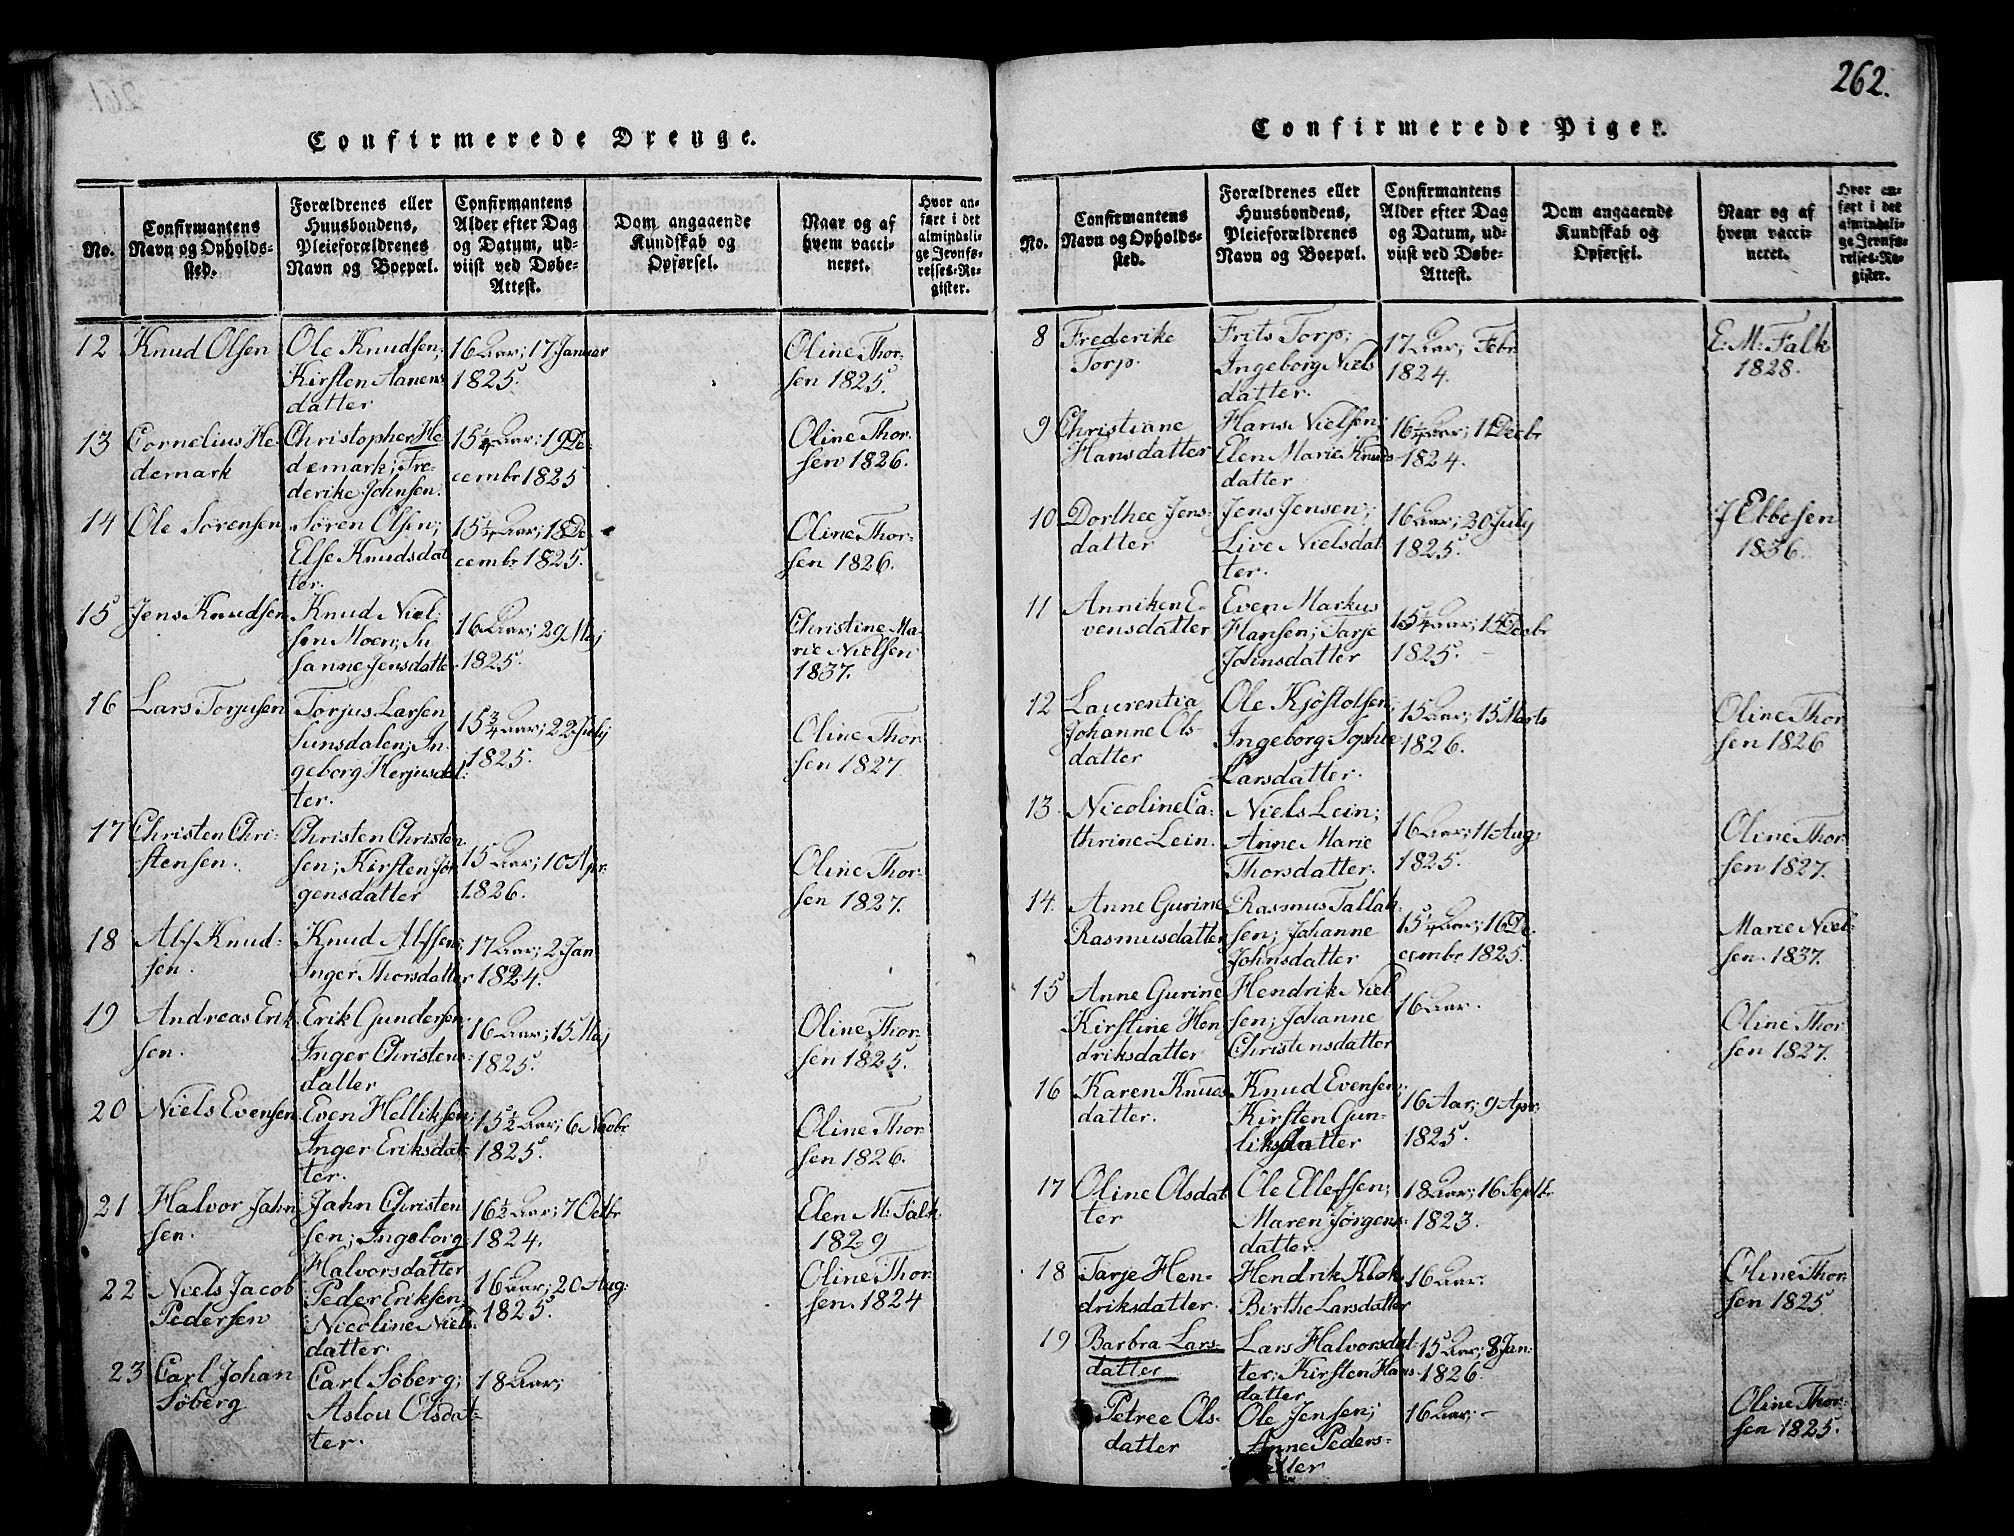 262.
Confirmerede Drenge.
No.
Confirmantens
Navn og Opholds-
sted.
Forældrenes eller
Huusbondens,
Pleieforældrenes
Navn og Boepæl.
Confirmantens
Alder efter Dag
og Datum, ud-
viist ved Døbe-
Attest.
Dom angaaende
Kundskab og
Opførsel.
Naar og af
hvem vacci-
neret.
Hvor an-
ført i det
almindeli-
ge Jevnfø-
relses-Re-
gister.
12 Knud Olsen
Ole Knudsen;
Kirsten Aanens
datter
16 Aar; 17 Januar
1825.
Oline Thor-
sen 1825.
13 Cornelius He-
demark
Christopher He
demark; Fre-
derike Johnsen.
15¼ Aar; 19 De-
cembr 1825
Oline Thor-
sen 1826.
14 Ole Sørensen
Søren Olsen;
Else Knudsdat
ter.
15¼ Aar; 18 De
cembr 1825.
Oline Thor-
sen 1826.
15 Jens Knudsen
Knud Niel-
sen Moen; Su
sanne Jensdatte
16 Aar; 29 Maj
1825.
Christine Ma-
rie Nielsen
1837.
16 Lars Torjusen
Torjus Larsen
Sunsdalen; In-
geborg Herjusdat-
ter.
15¾ Aar; 22 July
1825.
Oline Thor
sen 1827
17 Christen Chri-
stensen.
Christen Christen
sen; Kirsten Jör
gensdatter
15 Aar; 10 Apr.
1826.
Oline Thor-
sen 1827.
18 Alf Knud-
sen.
Knud Alfsen;
Inger Thorsdatter
17 Aar; 2 Jan
1824.
19 Andreas Erik
sen.
Erik Gundersen
Inger Christens-
datter
16 Aar; 15 Maj
1825.
Oline Thor-
sen 1825.
20 Niels Evensen
Even Helliksen;
Inger Eriksdat-
ter.
15½ Aar; 6 Novbr
1825.
Oline Thor-
sen 1826.
21 Halvor Jahn
sen.
Jahn Christen
sen; Ingeborg
Halvorsdatter
16½ Aar; 7 Octbr
1824.
Elen M: Falk
1829
22 Niels Jacob
Pedersen
Peder Eriksen;
Nicoline Niels-
datter.
16 Aar; 20 Aug:
1825.
Oline Thor-
sen. 1824
23 Carl Johan
Søberg
Carl Söberg;
Aslou Olsdat-
ter.
18 Aar;
Confirmerede Piger.
No.
Confirmantens
Navn og Opholds-
sted.
Forældrenes eller
Huusbondens,
Pleieforældrenes
Navn og Boepæl.
Confirmantens
Alder efter Dag
og Datum, ud-
viist ved Døbe-
Attest.
Dom angaaende
Kundskab og
Opførsel.
Naar og af
hvem vacci-
neret.
Hvor an-
ført i det
almindeli-
ge Jevnfø-
relses-Re-
gister.
8 Frederike
Torp.
Frits Torp;
Ingeborg Niels
datter.
17 Aar; Febr
1824.
E: M: Falk
1828.
9 Christiane
Hansdatter
Hans Nielsen;
Elen Marie Knuds-
datter
16¼ Aar; 11 Decbr
1824.
10 Dorthee Jens-
datter
Jens Jensen;
Live Nielsdat-
ter.
16 Aar; 20 July
1825.
J Ebbesen
1836.
11 Anniken E-
vensdatter
Even Markus
Hansen; Tarje
Johnsdatter
15¼ Aar; 1 Decbr
1825.
12 Laurentia
Johanne Ols-
datter
Ole Kjöstolsen;
Ingeborg
Larsdatter.
15 Aar; 15 Marts
1826.
Oline Thor
sen 1826
13. Nicoline Ca-
thrine Lein.
Niels Lein;
Anne Marie
Thorsdatter.
16 Aar; 11 Aug:
1825.
Oline Thor-
sen 1827.
14. Anne Gurine
Rasmusdatter
Rasmus Tallak-
sen; Johanne
Johnsdatter
15¼ Aar; 16 De-
cembr 1825.
Marie Niel-
sen. 1837.
15 Anne Gurine
Kirstine Hen
driksdatter
Hendrik Niel
sen; Johanne
Christensdatter
16 Aar.
Oline Thor
sen 1827.
16 Karen Knuds
datter.
Knud Evensen;
Kirsten Gun-
liksdatter
16 Aar; 9 Apr:
1825.
17 Oline Olsdat
ter
Ole Ellefsen;
Maren Jørgens-
datter.
18 Aar; 16 Septbr
1823.
18 Tarje Hen-
driksdatter.
Hendrik Klok
Birthe Larsdatter
16 Aar.
Oline Thor-
sen 1825
19 Barbra Lars-
datter
Lars Halvorsdat-
ter; Kirsten Hans
datter
15 Aar; 8 Jan:
1826.
Petree Ols-
datter
Ole Jensen;
Anne Peders-
datter
16 Aar; -
Oline Thor-
sen 1825.